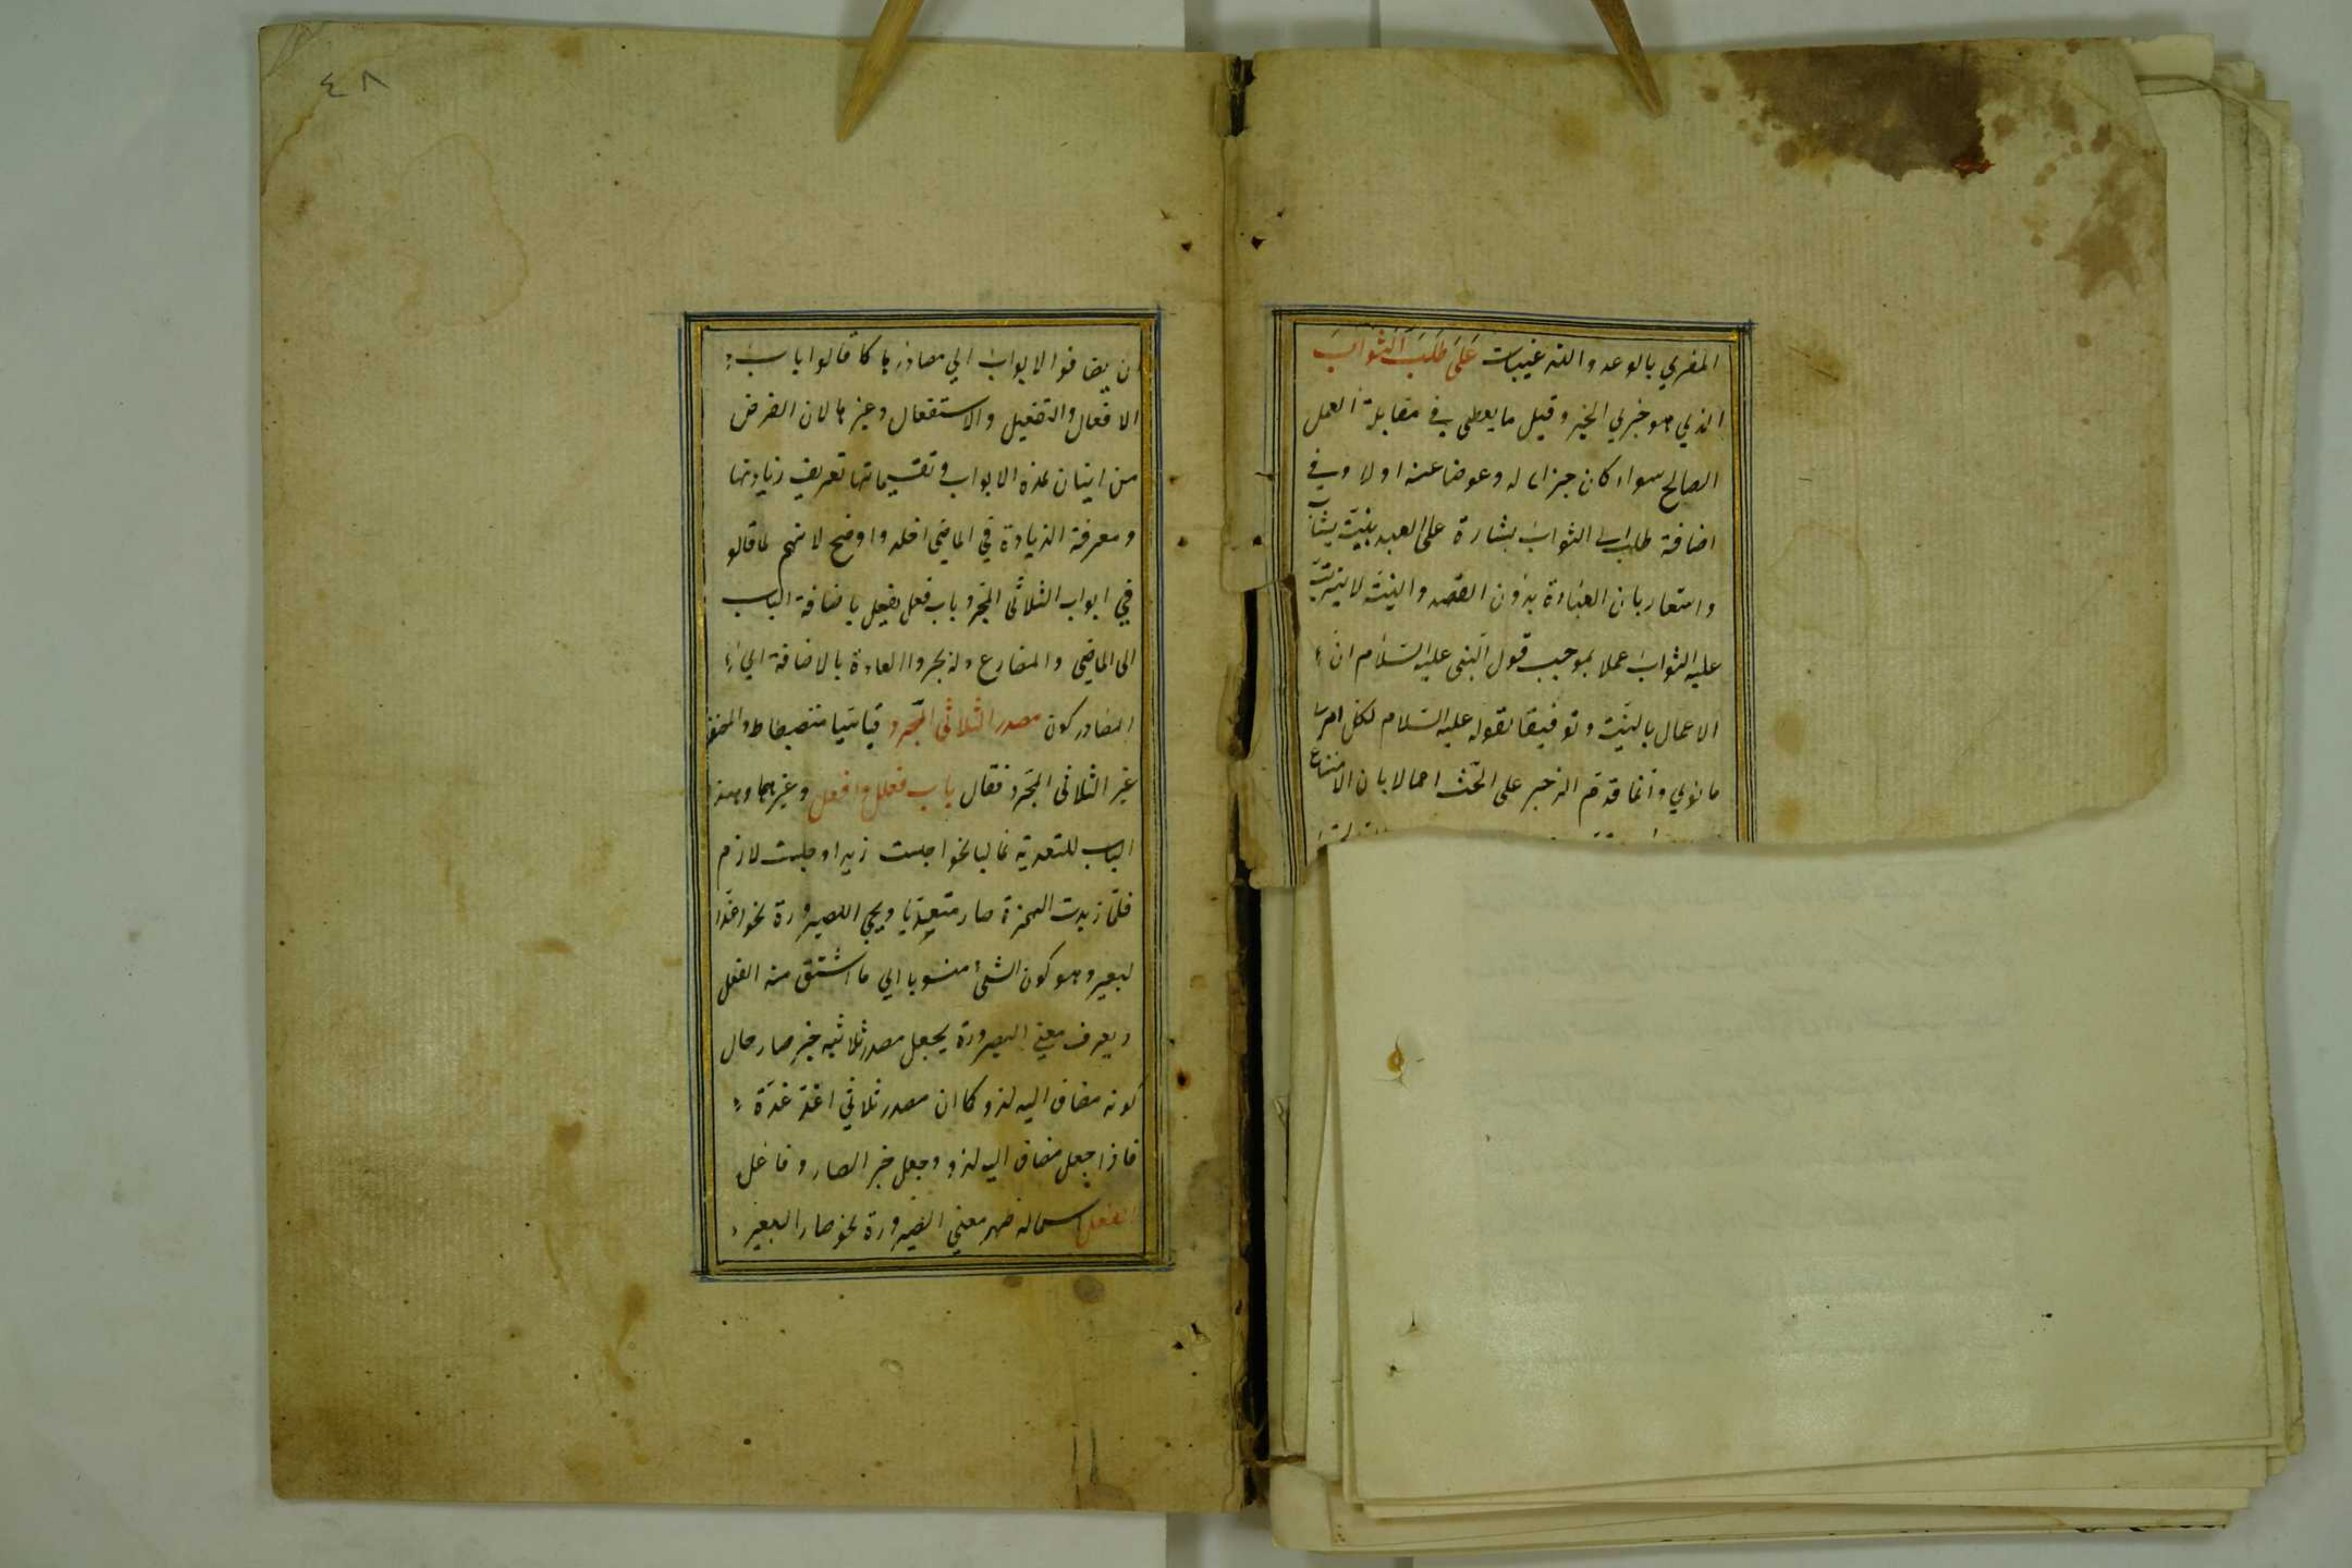 المغري بالوعد والترغيبات على طلب الثواب
الذي هو خبري الخير وقيل ما يعطى في مقابلة العمل
الصالح سواء كان جزاء له وعوضا عنه اولا وفي
اضافة طلب الى الثواب بشارة على العبد بنية يثاب
واشعار بان العبادة بدون القصد والنية لا يترتب
عليه الثواب عملا بموجب قول النبي عليه السلام ان
الاعمال بالنية وتوفيقا لقوله عليه السلام لكل امرء
ما نوي وانما قدم الزجر على الحث اجمالا بان الامتناع
٤٨
ان يضافوا الابواب الي مصادرها كما قالوا باب
الافعال والتفعيل والاستفعال وغيرها لان الغرض
من اتيان هذه الابواب وتقسيماتها تعريف زيادتها
ومعرفة الزيادة في الماضي اظهر واوضح لانهم لما قالو
في ابواب الثلاثى المجرد باب فعل يفعل باضافة الباب
الى الماضي والمضارع ولم يجروا العادة بالاضافة الي
المصادر كون مصدر الثلاثى المجرد قياسيا منضبطا
غير الثلاثى المجرد فقال باب فعلل وافعل وغيرهما وهذا
الباب للتعدية غالبا نحو اجلست زيدا وجلست لازم
فلما زيدت الهمزة صار متعديا ويجي للصيرورة نحو اغد
البعير وهو كون الشئ منسوبا الي ما اشتق منه الفعل
ويعرف معني الصيرورة بجعل مصدر ثلاثيه خبر صار حال
كونه مضاف اليه لذو كما ان مصدر ثلاثي اغد غدة
فاذا جعل مضاف اليه لذو وجعل خبر الصار وفاعل
الفعل اسما له ظهر معني الصيرورة نحو صار البعير